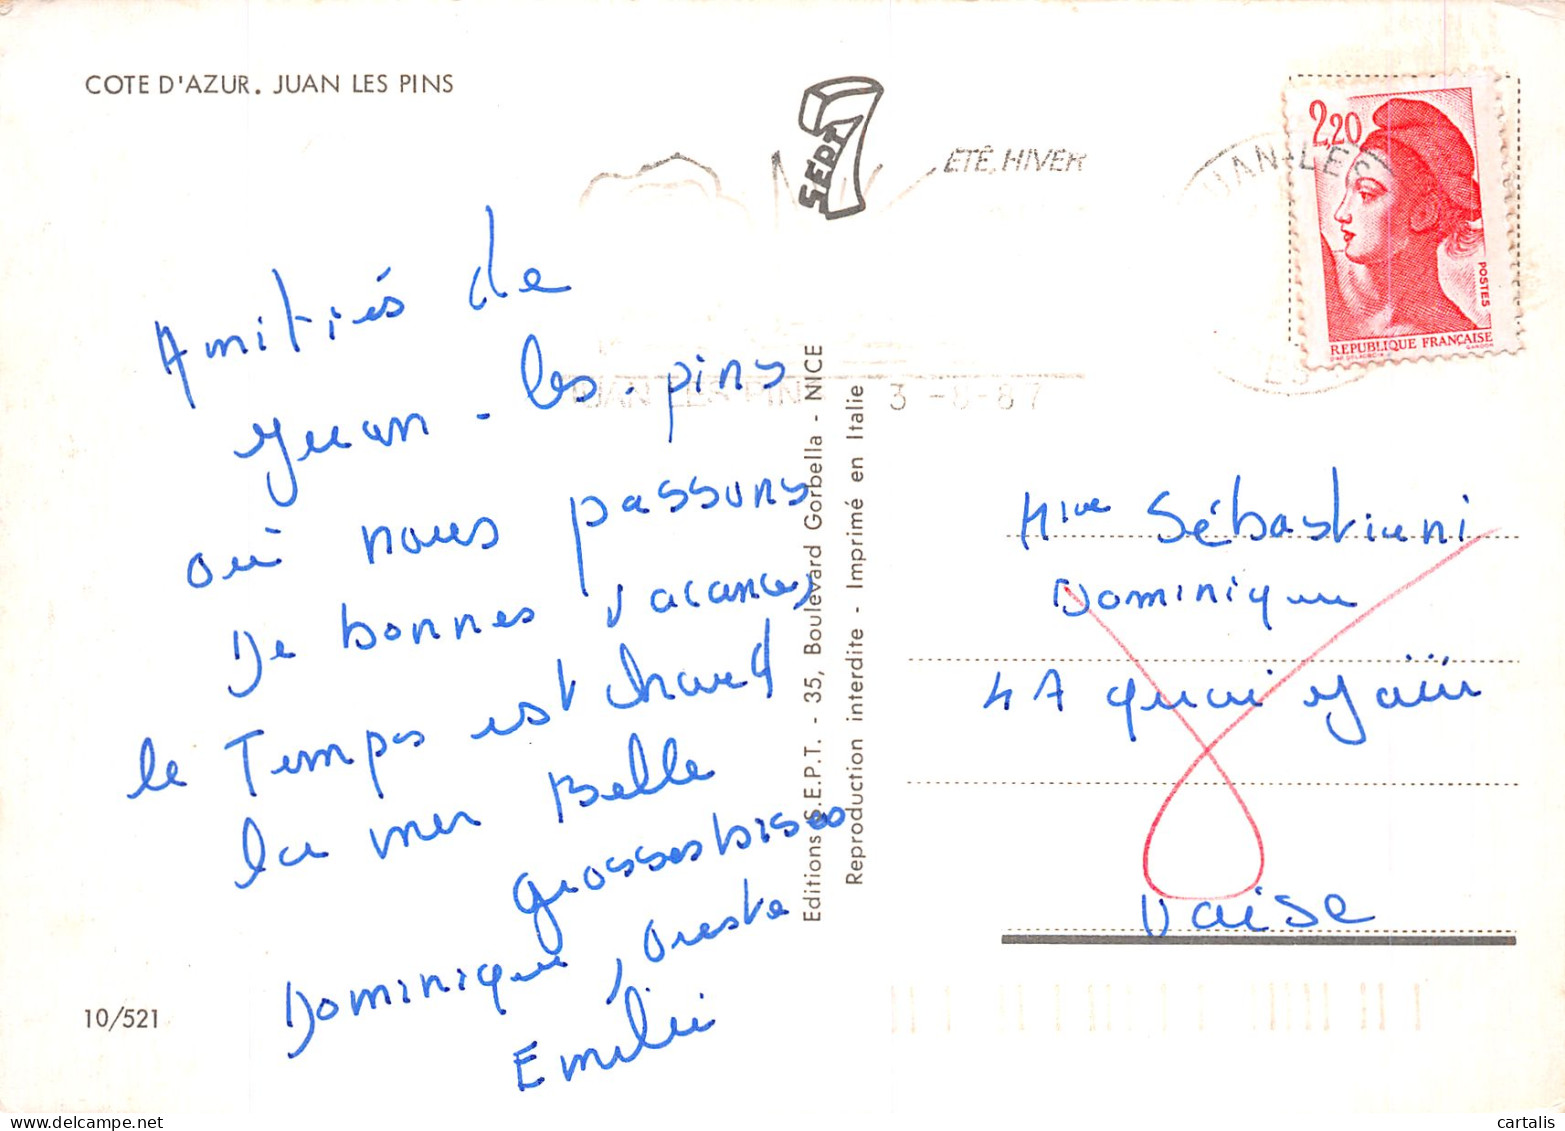 COTE D'AZUR. JUAN LES PINS
SEPT
ÉTÉ, HIVER
JUAN LES PINS 3 -8-87
JUAN-LES
2,20
POSTES
REPUBLIQUE FRANÇAISE
Amitiés de
Juan-les-pins
où nous passons
De bonnes vacances
le Temps est chaud
la mer Belle
grosses bises
Dominique, Oreste
Emilie
10/521
Editions S.E.P.T. - 35, Boulevard Gorbella - NICE
Reproduction interdite - Imprimé en Italie
Mme Sébastiani
Dominique
47 quai
Vaise
cartalis